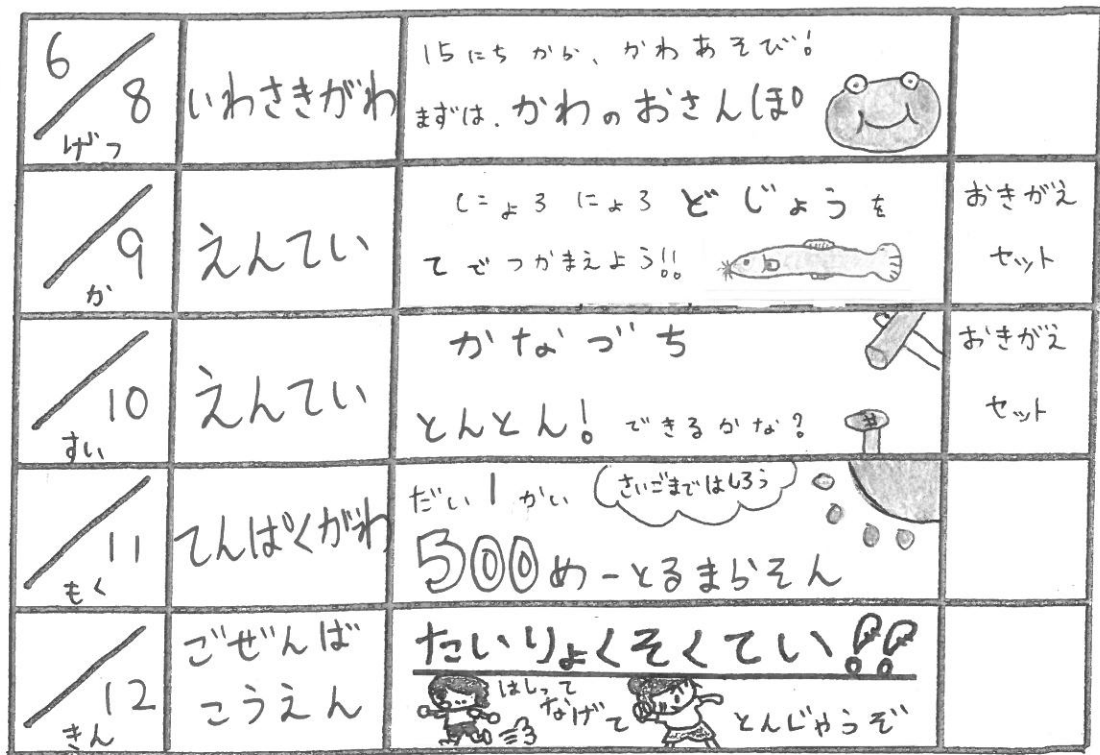 6/8
げつ
いわさきがわ
15にちから、かわあそび!
まずは、かわのおさんぽ
/9
か
えんてい
にょろにょろどじょうを
てでつかまえよう!!
おきがえ
セット
/10
すい
えんてい
かなづち
とんとん!できるかな?
おきがえ
セット
/11
もく
てんぱくがわ
だい1かい
さいごまではしろう
500めーとるまらそん
/12
きん
ごぜんば
こうえん
たいりょくそくてい!!
はしって
なげて
とんじゃうぞ